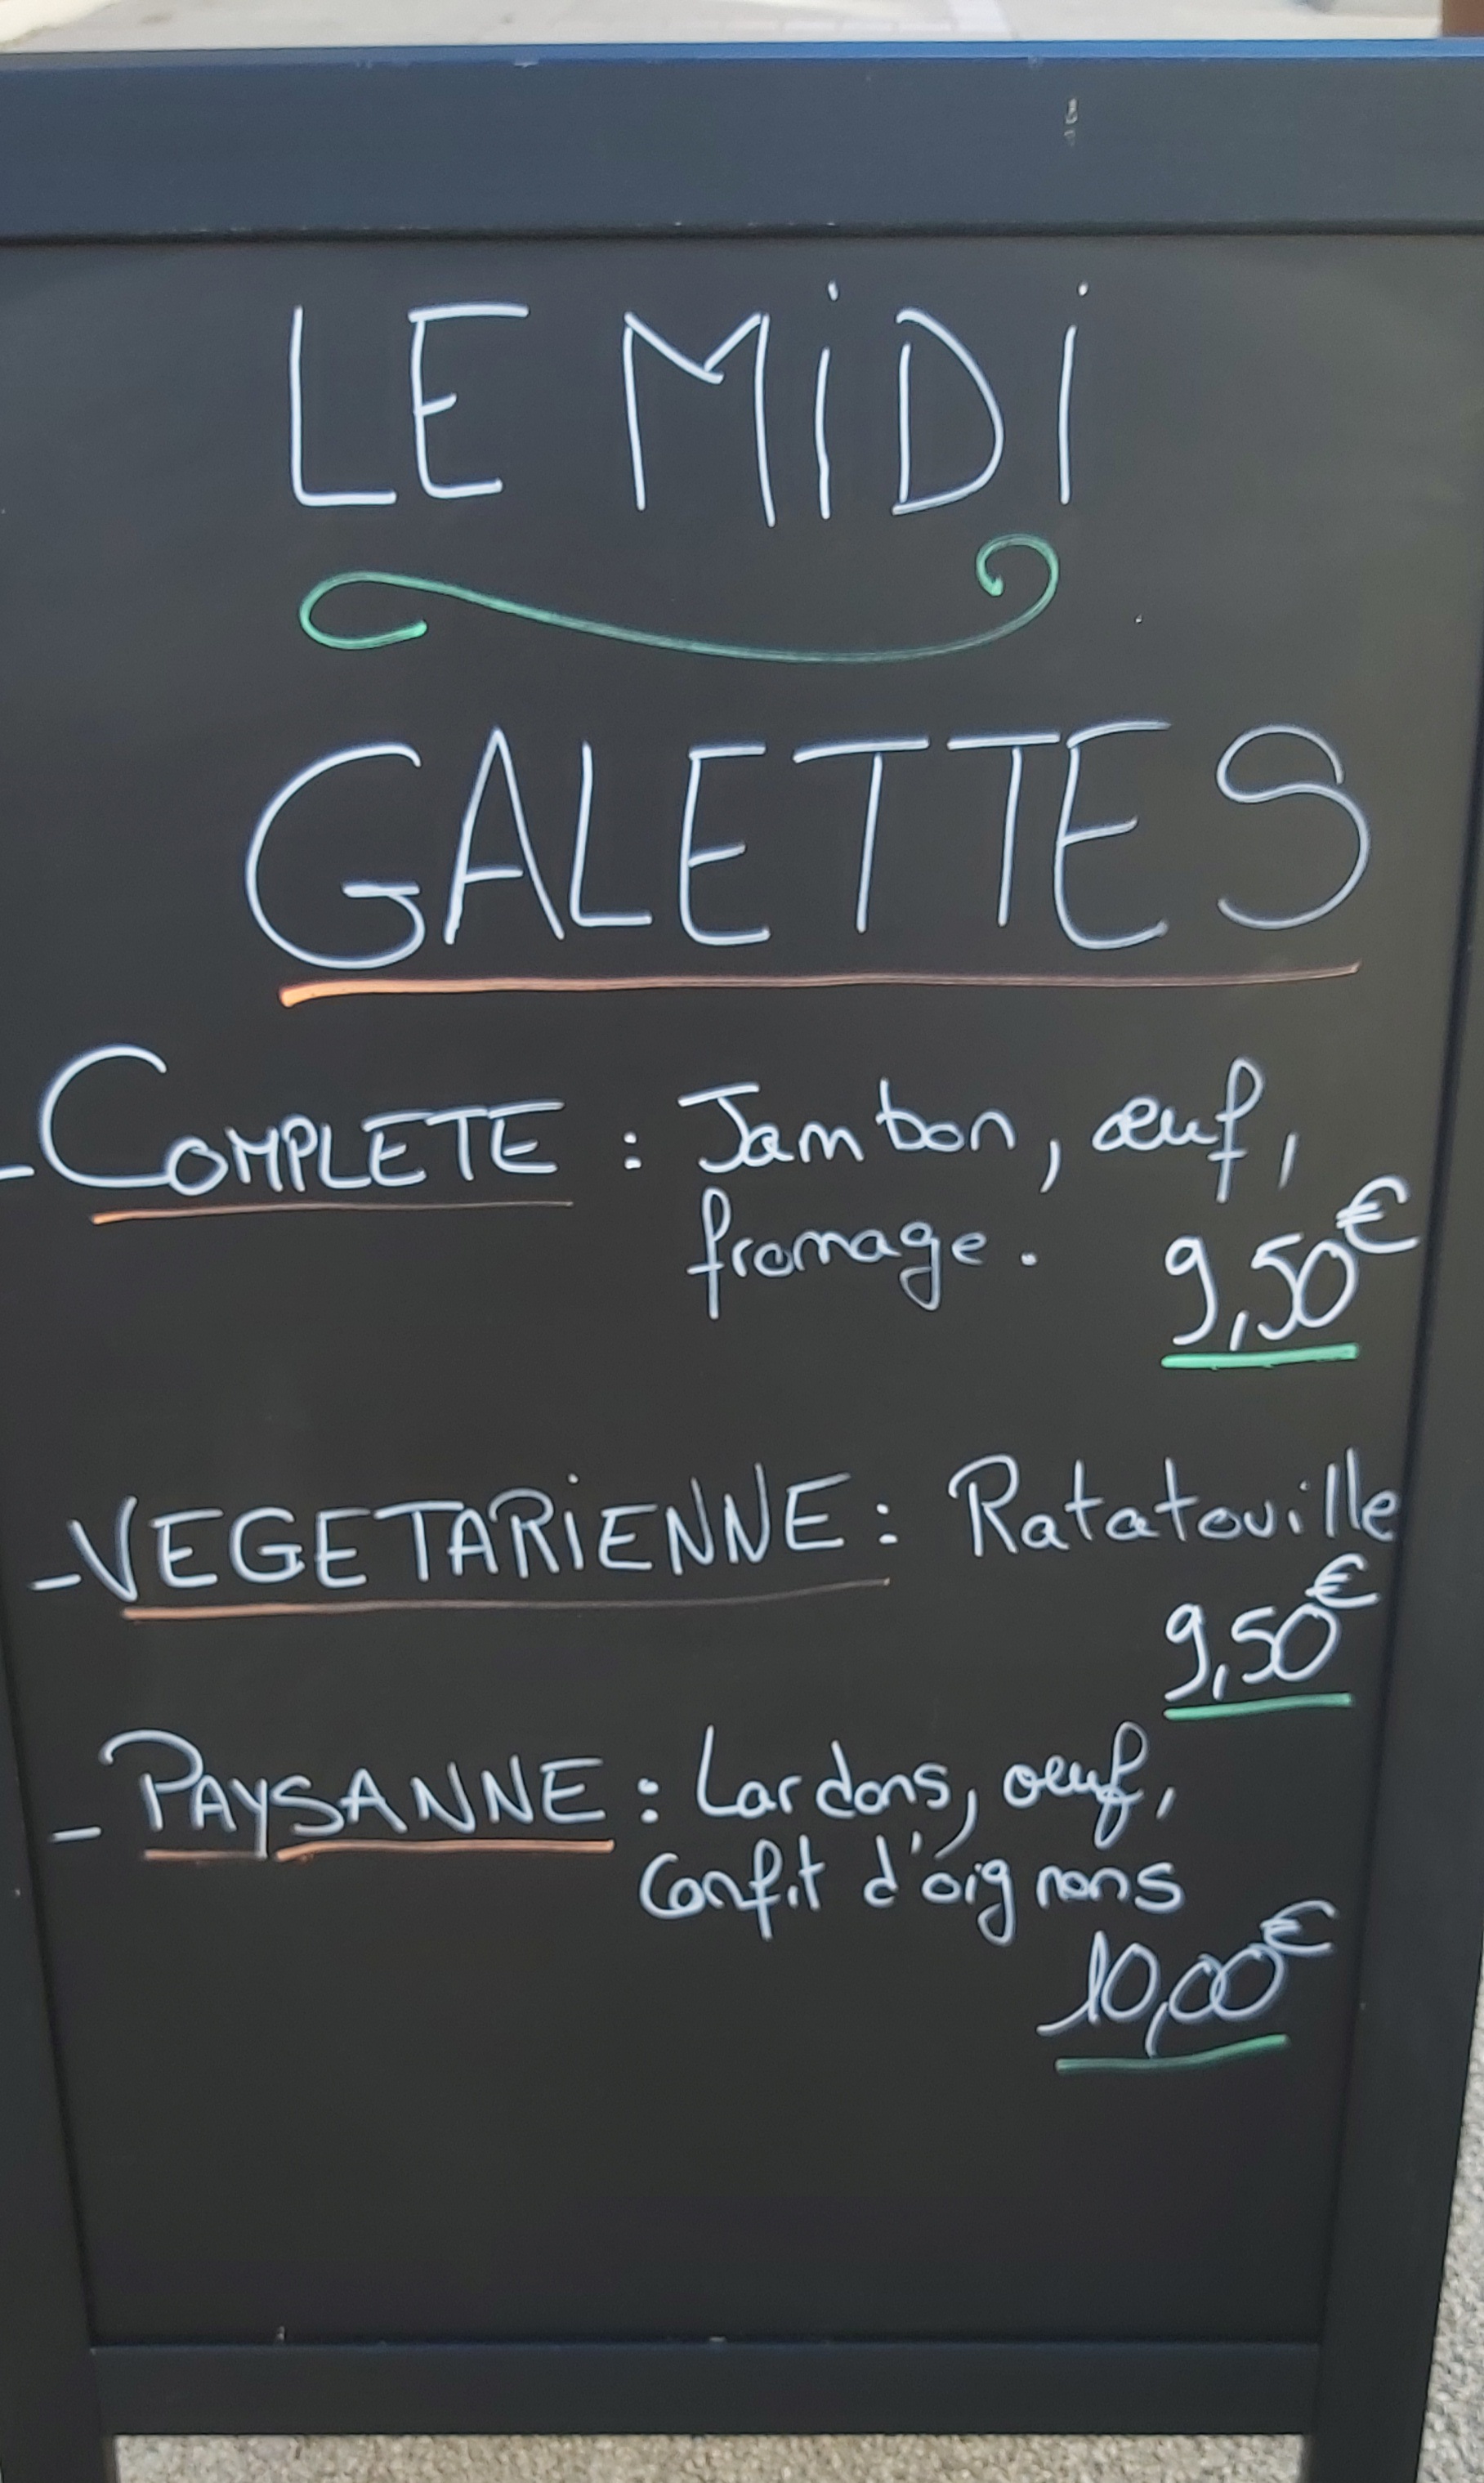 LE MiDi
GALETTES
-COMPLETE : Jambon, œuf,
fromage.
9,50€
-VEGETARiENNE : Ratatouille
9,50€
- PAYSANNE : Lardons, œuf,
Confit d'oignons
10,00€